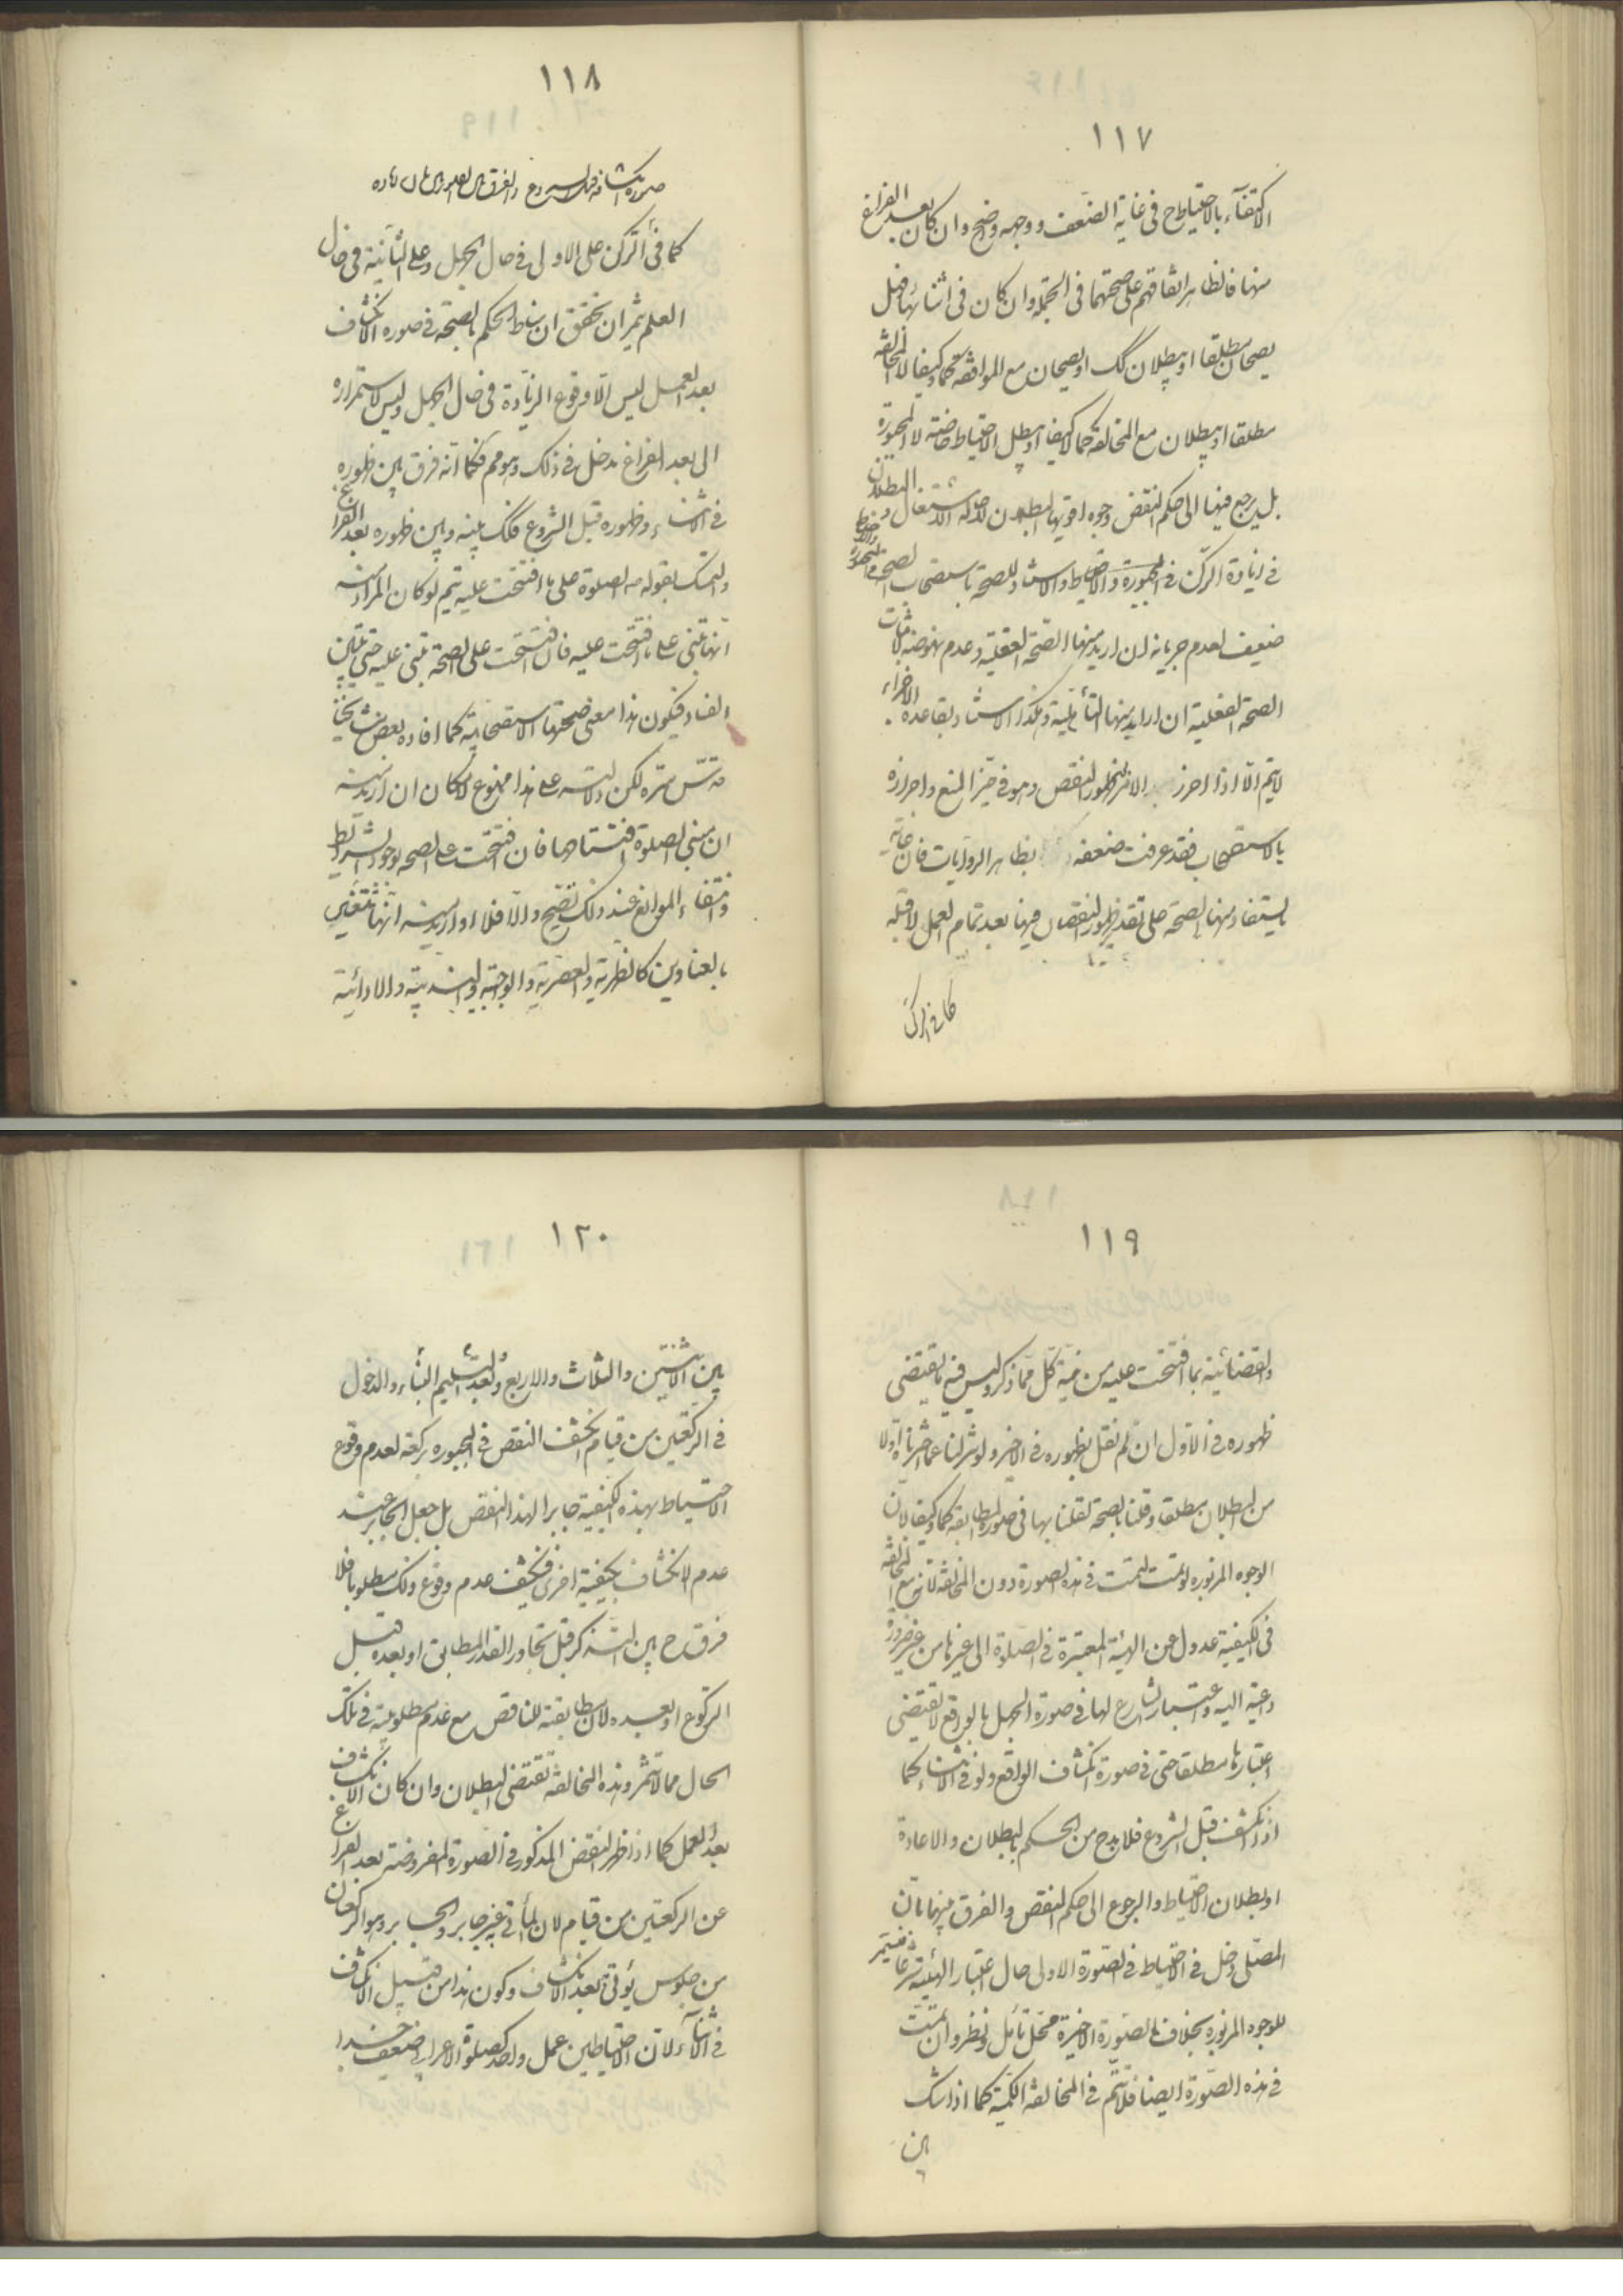 ١١٧
الاكتفاء بالاحتياط ح فى غاية الضعف ووجهه واضح وان كان بعد الفراغ
منها فالظاهر اتفاقهم على صحتهما فى الجملة وان كان فى اثنائها فهل
يصحان مطلقا او يبطلان كك او يصحان مع الموافقة كما وكيفا لا المخالفة
مطلقا او يبطلان مع المخالفة كما لا كيفا او يبطل الاحتياط خاصة لا المجبورة
بل يرجع فيها الى حكم النقص وجوه اقويها البطلان لاصالة الاشتغال و البطلان
فى زيادة الركن فى المجبورة والاحتياط والاستناد للصحة باستصحاب الصحة
ضعيف لعدم جريانه ان اريد منها الصحة الفعلية وعدم نهوضه لاثبات
الصحة الفعلية ان اريد منها التأهلية وهكذا الاستناد بقاعدة الاجزاء
لا يتم الا اذا احرز الامر لظهور النقص وهو فى حيز المنع واحرازه
بالاستصحاب فقد عرفت ضعفه بظاهر الروايات فان غاية
ما يستفاد منها الصحة على تقدير ظهور النقصان فيها بعد تمام العمل لا قبله
كما فى الركن
١١٨
صورة انكشافه قبل الشروع والفرق بين
كما فى الركن على الاولى فى حال الجهل وعلى الثانية فى حال
العلم يثمر ان تحقق ان مناط الحكم بالصحة فى صورة الانكشاف
بعد العمل ليس الا وقوع الزيادة فى حال الجهل وليس لاستمراره
الى بعد الفراغ مدخل فى ذلك وهو مم فكما انه فرق بين ظهوره
فى الاثناء وظهوره قبل الشروع فكك بينه وبين ظهوره بعد الفراغ
والتمسك بقوله الصلوة على ما افتتحت عليه يتم لو كان المراد منه
انها تبنى على ما افتتحت عليه فان افتتحت على الصحة تبنى عليه حتى يتبين
الفساد فيكون هذا معنى صحتها الاستصحابية كما افاده بعض مشايخنا
قدس سره لكن دلالته على هذا ممنوع لامكان ان اريد منه
ان مبنى الصلوة افتتاحها فان افتتحت على الصحة بوجود الشرائط
وانتفاء الموانع عند ذلك تصح والا فلا او اريد منه انها تتعين
بالعناوين كالظهرية والعصرية والواجبية والندبية والادائية
١١٩
والقضائية بما افتتحت عليه من نية كل مما ذكر وليس فيه ما يقتضى
ظهوره فى الاول ان لم نقل بظهوره فى الاخير ولو نزلنا عما اخترناه اولا
من البطلان مطلقا وقلنا بالصحة لقلنا بها فى صورة المطابقة كما وكيفا لان
الوجوه المزبورة لو تمت لتمت فى هذه الصورة دون المخالفة لانه مع المخالفة
فى الكيفية عدول عن الهيئة المعتبرة فى الصلوة الى غيرها من غير ضرورة
داعية اليه واعتبار الشارع لها فى صورة الجهل بالواقع لا يقتضى
اعتبارها مطلقا حتى فى صورة انكشاف الواقع ولو فى الاثناء كما
اذا انكشف قبل الشروع فلا بد ح من الحكم بالبطلان والاعادة
او بطلان الاحتياط والرجوع الى حكم النقص والفرق بينهما بان
المصلى دخل فى الاحتياط فى الصورة الاولى حال اعتبار الهيئة شرعا فيتم
للوجوه المزبورة بخلاف الصورة الاخيرة محل تأمل ونظر وان تمت
فى هذه الصورة ايضا فلا يتم فى المخالفة الكمية كما اذا شك
بين
١٢٠
بين الاثنتين والثلاث والاربع وبعد التسليم البناء والدخول
فى الركعتين من قيام انكشف النقص فى المجبورة بركعة لعدم وقوع
الاحتياط بهذه الكيفية جابرا لهذا النقص بل جعل الجابر عند
عدم الانكشاف بكيفية اخرى فينكشف عدم وقوع ذلك مطلوبا فلا
فرق ح بين التذكر قبل تجاوز القدر المطابق او بعده قبل
الركوع او بعده لان مطابقته للناقص مع عدم مطلوبيته فى تلك
الحال مما لا يثمر وهذه المخالفة تقتضى البطلان وان كان الانكشاف
بعد العمل كما اذا ظهر النقص المذكور فى الصورة المفروضة بعد الفراغ
عن الركعتين من قيام لان المأتى به غير جابر والجابر وهو الركعتان
من جلوس يؤتى بعد الانكشاف وكون هذا من قبيل الانكشاف
فى الاثناء لان الاحتياطين عمل واحد كصلوة الاعرابى ضعيف جدا